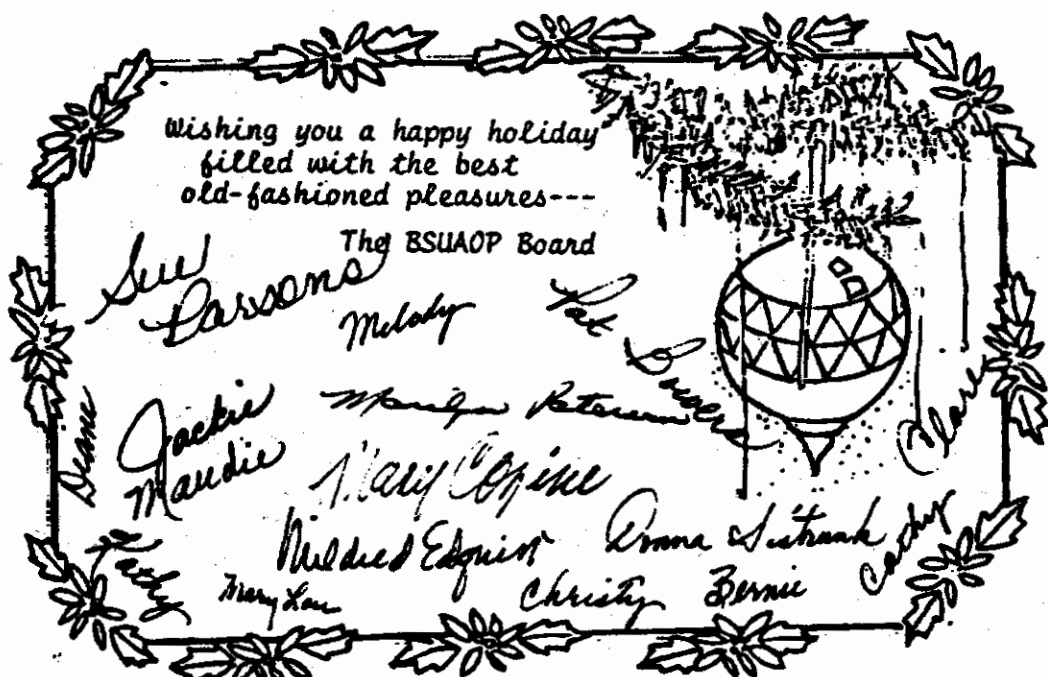 Wishing you a happy holiday
filled with the best
old-fashioned pleasures---
The BSUAOP Board
Sue
Parsons
Melody
Pat
Deane
Jackie
Maudie
Marilyn Petersen
Clare
Mary Cozine
Mildred Edquist
Donna Sistrunk
Cathy
Kathy
Mary Lou
Christy
Bernie